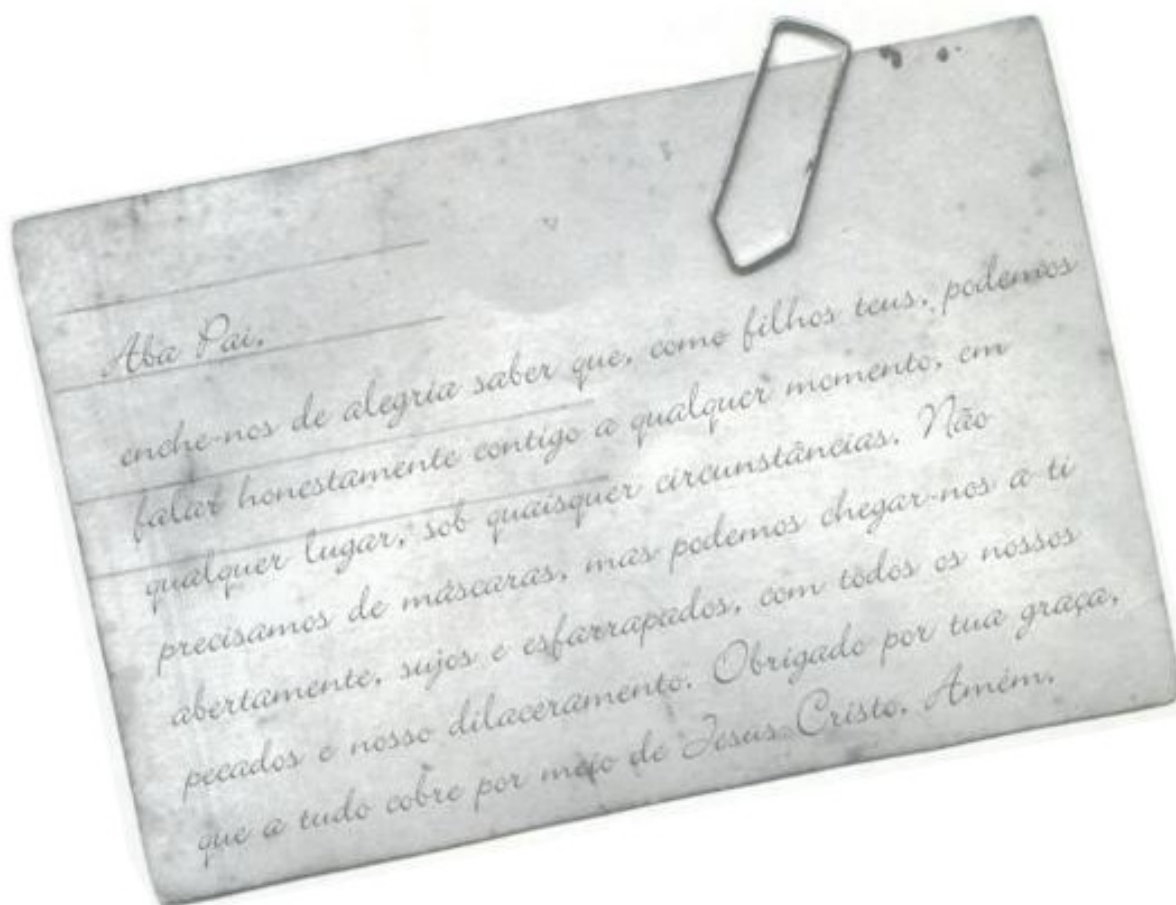 Aba Pai,
enche-nos de alegria saber que, como filhos teus, podemos
falar honestamente contigo a qualquer momento, em
qualquer lugar, sob quaisquer circunstâncias. Não
precisamos de máscaras, mas podemos chegar-nos a ti
abertamente, sujos e esfarrapados, com todos os nossos
pecados e nosso dilaceramento. Obrigado por tua graça,
que a tudo cobre por meio de Jesus Cristo. Amém.